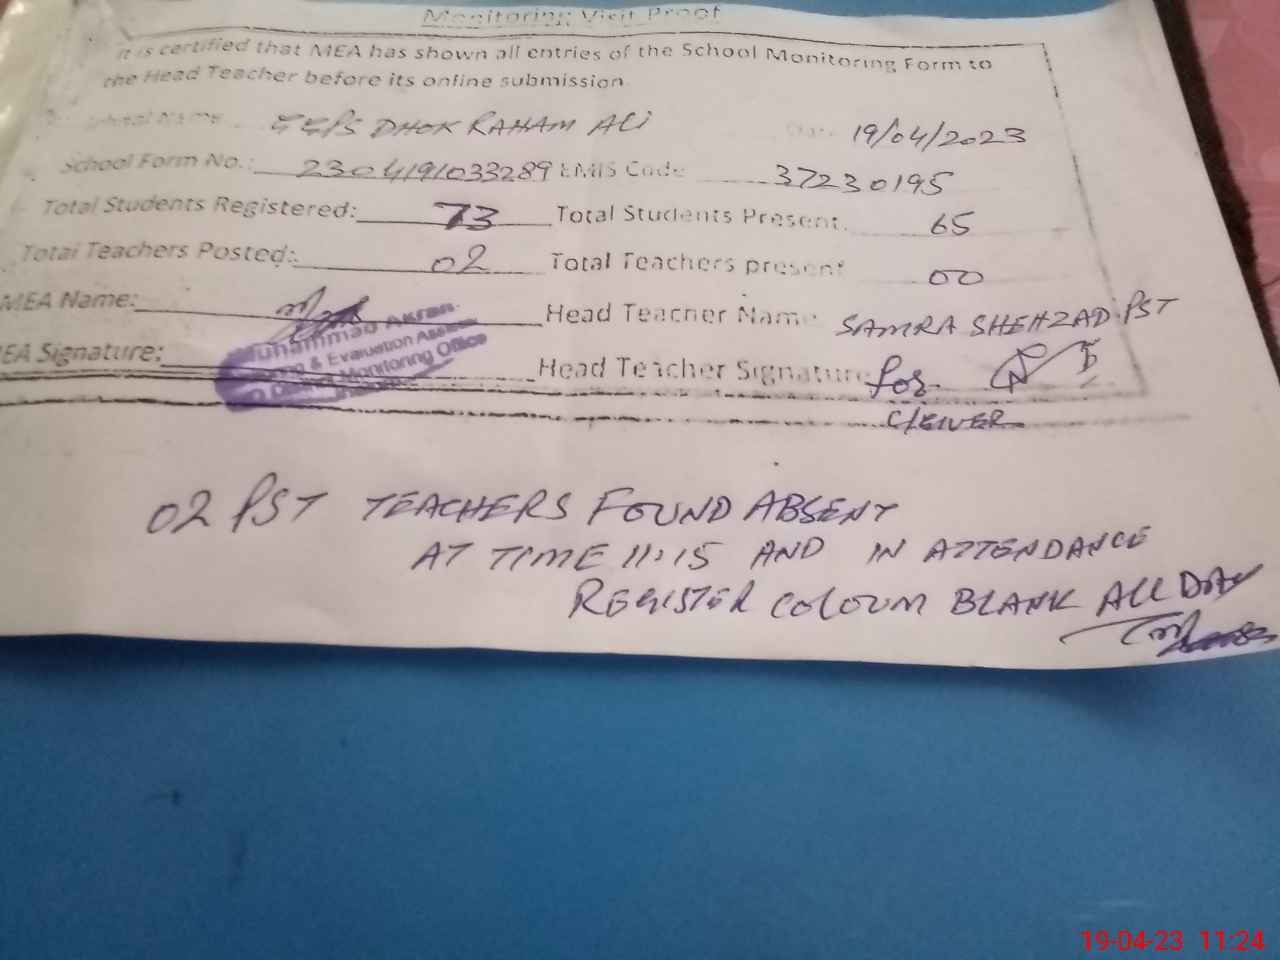 Monitoring Visit Proof
It is certified that MEA has shown all entries of the School Monitoring Form to
the Head Teacher before its online submission.
School Name GGPS DHOK RAHAM ALI Date 19/04/2023
School Form No.: 2304191033289 EMIS Code 37230195
Total Students Registered: 73 Total Students Present. 65
Total Teachers Posted: 02 Total Teachers present 00
MEA Name: Head Teacher Name SAMRA SHEHZAD PST
Muhammad Akram
& Evaluation Assistant
District Monitoring Office
EA Signature: Head Teacher Signature for
02 PST TEACHERS FOUND ABSENT
AT TIME 11:15 AND IN ATTENDANCE
REGISTER COLOUM BLANK ALL DAY
19-04-23 11:24